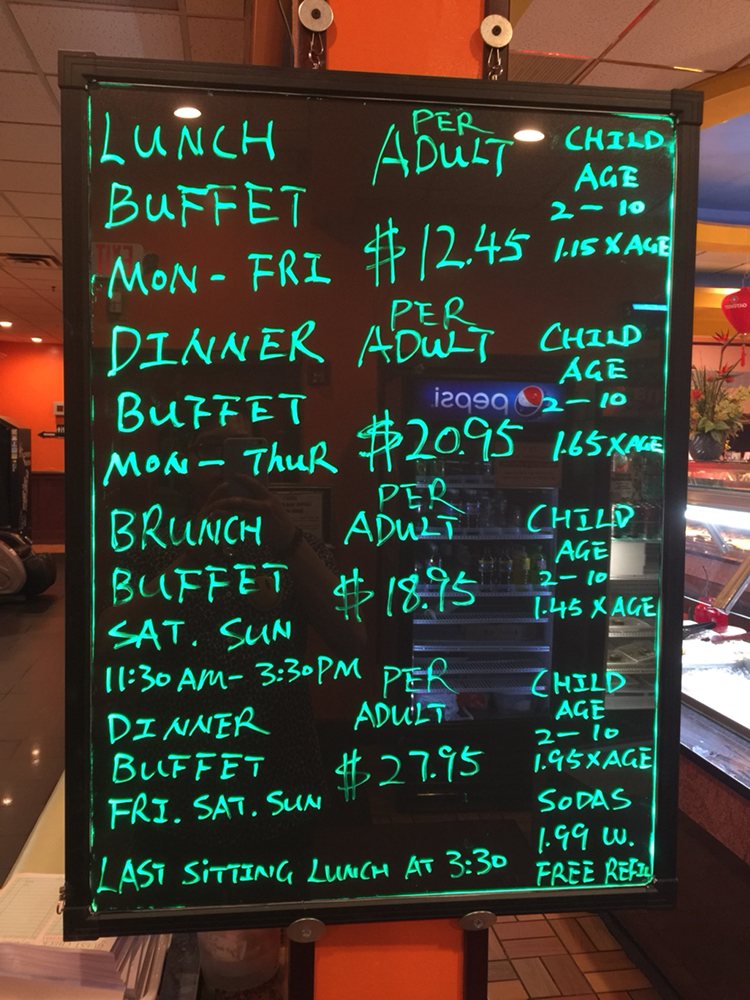 LUNCH
BUFFET
MON - FRI
PER
ADULT
$12.45
CHILD
AGE
2 - 10
1.15 X AGE
DINNER
BUFFET
MON - THUR
PER
ADULT
$20.95
CHILD
AGE
2 - 10
1.65 X AGE
BRUNCH
BUFFET
SAT. SUN
11:30 AM - 3:30 PM
PER
ADULT
$18.95
CHILD
AGE
2 - 10
1.45 X AGE
DINNER
BUFFET
FRI. SAT. SUN
PER
ADULT
$27.95
CHILD
AGE
2 - 10
1.95 X AGE
LAST SITTING LUNCH AT 3:30
SODAS
1.99 W.
FREE REFIL
pepsi
EXIT